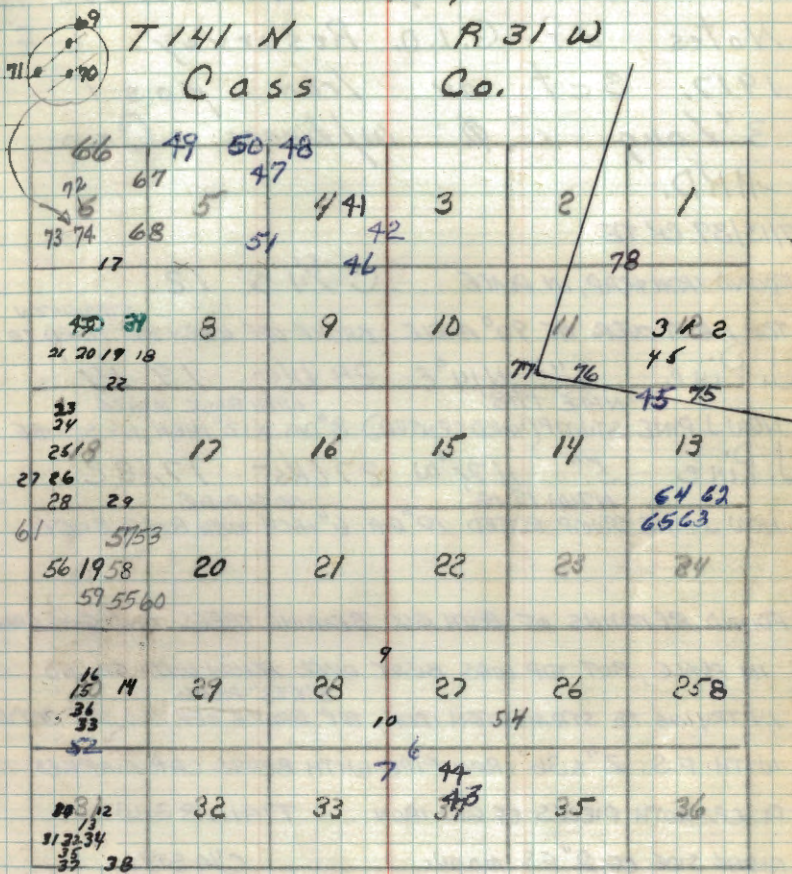 69
T 141 N R 31 W
71 70
Cass Co.
66 49 50 48
72 67 47
6 5 4 41 3 2 1
73 74 68 51 42
17 46 78
39 8 9 10 11 3 1 2
21 20 19 18 4 5
22 77 76
45 75
23
24
25 18 17 16 15 14 13
27 26
28 29 64 62
61 65 63
57 53
56 19 58 20 21 22 23 24
59 55 60
9
16
15 14 29 28 27 26 25 8
36
33 10 54
52 6
7 44
12 32 33 43 35 36
13
31 32 34
35
37 38